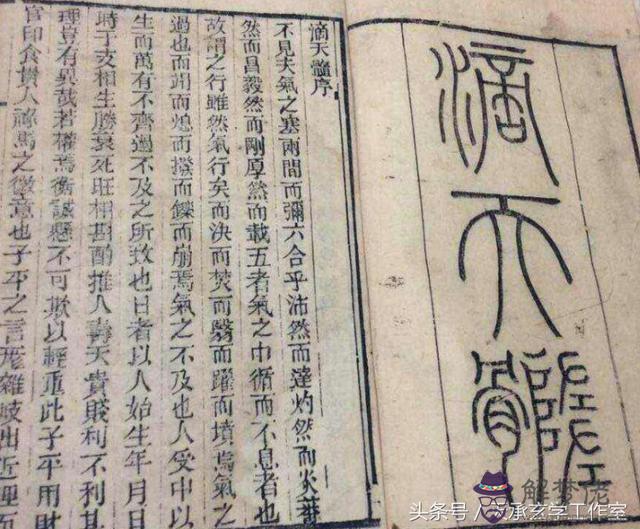 滴天髓
滴天髓序
不見夫氣之塞兩間而彌六合乎沛然而達灼然而炎
然而昌毅然而剛厚然而載五者氣之中循而不息者也
故謂之行雖然氣行矣而決而焚而翳而躍而墳焉氣之
過也而涸而熄而撥而鑠而崩焉氣之不及也人受中以
生而萬有不齊過不及之所致也日者以人始生年月日
時干支相生勝衰死旺相斟酌推人壽夭貴賤利不利其
理豈有異哉若權焉衡誠懸不可欺以輕重此子平用財
官印食貴人祿馬之徽意也子平之言厖雜岐出近理而
解梦佬
头条号 承玄学工作室